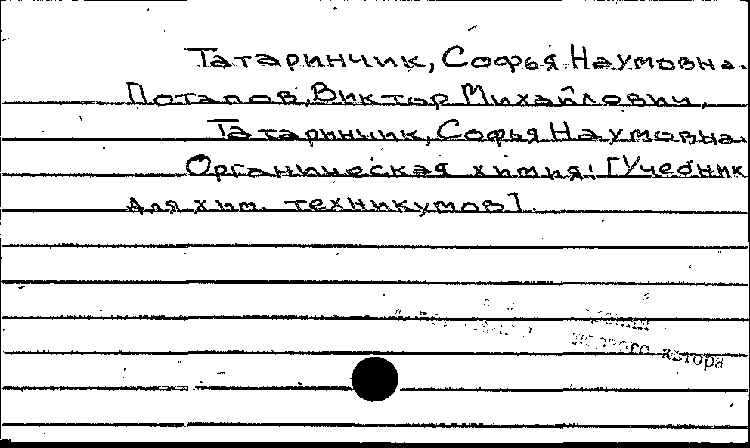 Татаринчик, Софья Наумовна.
Потапов, Виктор Михайлович,
Татаринчик, Софья Наумовна.
Органическая химия: [Учебник
для хим. техникумов].
автора